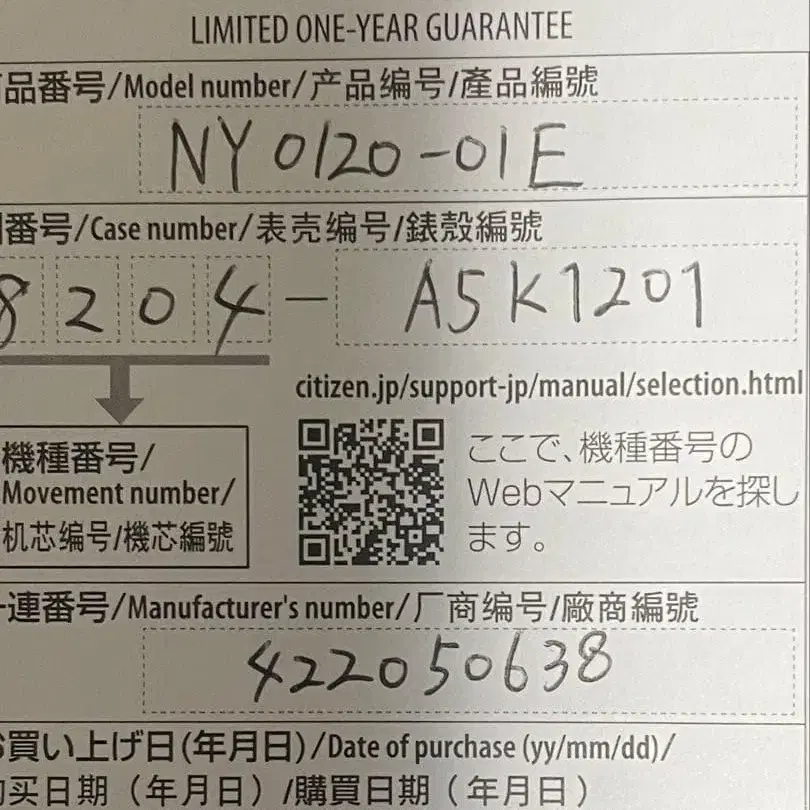 LIMITED ONE-YEAR GUARANTEE
品番号/Model number/产品编号/產品編號
NY0120-01E
番号/Case number/表壳编号/錶殼編號
8204-A5K1201
citizen.jp/support-jp/manual/selection.html
機種番号/
Movement number/
机芯编号/機芯編號
ここで、機種番号の
Webマニュアルを探し
ます。
連番号/Manufacturer's number/厂商编号/廠商編號
422050638
買い上げ日(年月日)/Date of purchase (yy/mm/dd)/
买日期（年月日）/購買日期（年月日）